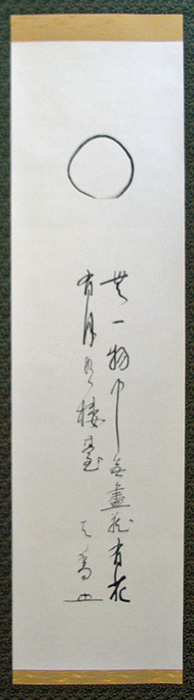 無一物中無盡蔵有花
有月有楼臺